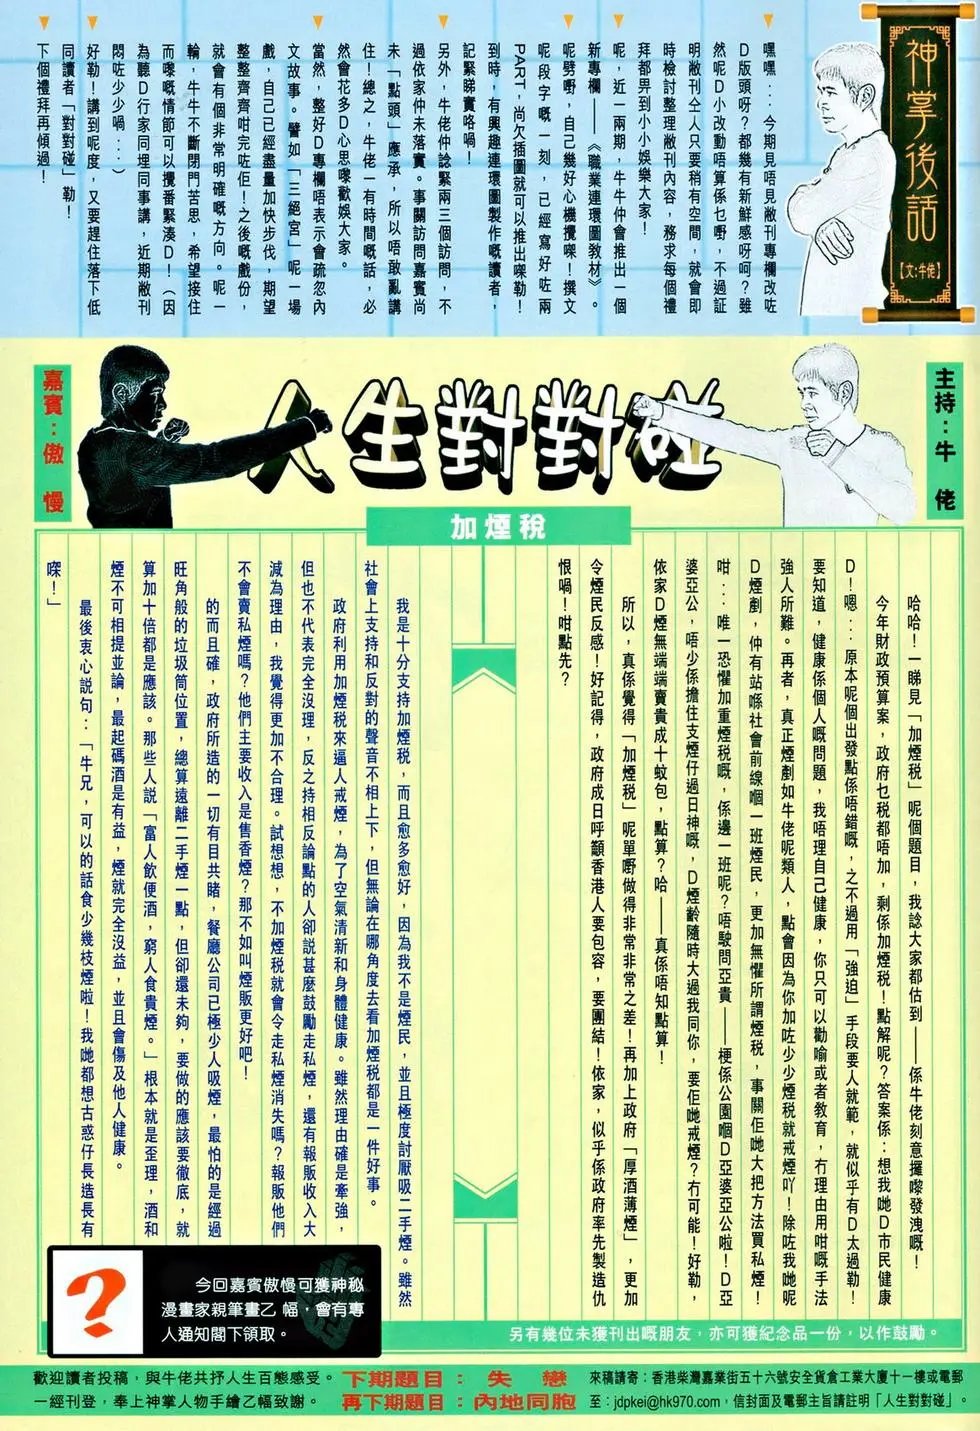 神掌後話
【文：牛佬】
嘿嘿…今期見唔見敝刊專欄改咗
D版頭呀？都幾有新鮮感呀呵？雖
然呢D小改動唔算係乜嘢，不過証
明敝刊仝人只要稍有空間，就會即
時檢討整理敝刊內容，務求每個禮
拜都畀到小小娛樂大家！
呢，近一兩期，牛牛仲會推出一個
新專欄——《職業連環圖教材》。
呢劈嘢，自己幾好心機攪㗎！撰文
呢段字嘅一刻，已經寫好咗兩
PART，尚欠插圖就可以推出㗎勒！
到時，有興趣連環圖製作嘅讀者，
記緊睇實咯喎！
另外，牛佬仲諗緊兩三個訪問，不
過依家仲未落實。事關訪問嘉賓尚
未「點頭」應承，所以唔敢亂講
住！總之，牛佬一有時間嘅話，必
然會花多D心思嚟歡娛大家。
當然，整好D專欄唔表示會疏忽內
文故事。譬如「三絕宮」呢一場
戲，自己已經盡量加快步伐，期望
整整齊齊咁完咗佢！之後嘅戲份，
就會有個非常明確嘅方向。呢一
輪，牛牛不斷閉門苦思，希望接住
而嚟嘅情節可以攪番緊湊D！（因
為聽D行家同埋同事講，近期敝刊
悶咗少少喎…）
好勒！講到呢度，又要趕住落下低
同讀者「對對碰」勒！
下個禮拜再傾過！
主持：牛佬
人生對對碰
嘉賓：傲慢
加煙稅
哈哈！一睇見「加煙税」呢個題目，我諗大家都估到——係牛佬刻意攞嚟發洩嘅！
今年財政預算案，政府乜税都唔加，剩係加煙税！點解呢？答案係：想我哋D市民健康
D！嗯…原本呢個出發點係唔錯嘅，之不過用「強迫」手段要人就範，就似乎有D太過勒！
要知道，健康係個人嘅問題，我唔理自己健康，你只可以勸喻或者教育，冇理由用咁嘅手法
強人所難。再者，真正煙剷如牛佬呢類人，點會因為你加咗少少煙税就戒煙吖！除咗我哋呢
D煙剷，仲有站喺社會前線嗰一班煙民，更加無懼所謂煙税，事關佢哋大把方法買私煙！
咁…唯一恐懼加重煙税嘅，係邊一班呢？唔駛問亞貴——梗係公園嗰D亞婆亞公啦！D亞
婆亞公，唔少係擔住支煙仔過日神嘅，D煙齡隨時大過我同你，要佢哋戒煙？冇可能！好勒，
依家D煙無端端賣貴成十蚊包，點算？哈——真係唔知點算！
所以，真係覺得「加煙税」呢單嘢做得非常非常之差！再加上政府「厚酒薄煙」，更加
令煙民反感！好記得，政府成日呼籲香港人要包容，要團結！依家，似乎係政府率先製造仇
恨喎！咁點先？
我是十分支持加煙税，而且愈多愈好，因為我不是煙民，並且極度討厭吸二手煙。雖然
社會上支持和反對的聲音不相上下，但無論在哪角度去看加煙税都是一件好事。
政府利用加煙税來逼人戒煙，為了空氣清新和身體健康。雖然理由確是牽強，
但也不代表完全沒理，反之持相反論點的人卻説甚麼鼓勵走私煙，還有報販收入大
減為理由，我覺得更加不合理。試想想，不加煙税就會令走私煙消失嗎？報販他們
不會賣私煙嗎？他們主要收入是售香煙？那不如叫煙販更好吧！
的而且確，政府所造的一切有目共睹，餐廳公司已極少人吸煙，最怕的是經過
旺角般的垃圾筒位置，總算遠離二手煙一點，但卻還未夠，要做的應該要徹底，就
算加十倍都是應該。那些人説「富人飲便酒，窮人食貴煙。」根本就是歪理，酒和
煙不可相提並論，最起碼酒是有益，煙就完全沒益，並且會傷及他人健康。
最後衷心説句：「牛兄，可以的話食少幾枝煙啦！我哋都想古惑仔長造長有
㗎！」
?
今回嘉賓傲慢可獲神秘
漫畫家親筆畫乙幅，會有專
人通知閣下領取。
另有幾位未獲刊出嘅朋友，亦可獲紀念品一份，以作鼓勵。
歡迎讀者投稿，與牛佬共抒人生百態感受。
一經刊登，奉上神掌人物手繪乙幅致謝。
下期題目：失戀
再下期題目：內地同胞
來稿請寄：香港柴灣嘉業街五十六號安全貨倉工業大廈十一樓或電郵
至：jdpkei@hk970.com，信封面及電郵主旨請註明「人生對對碰」。